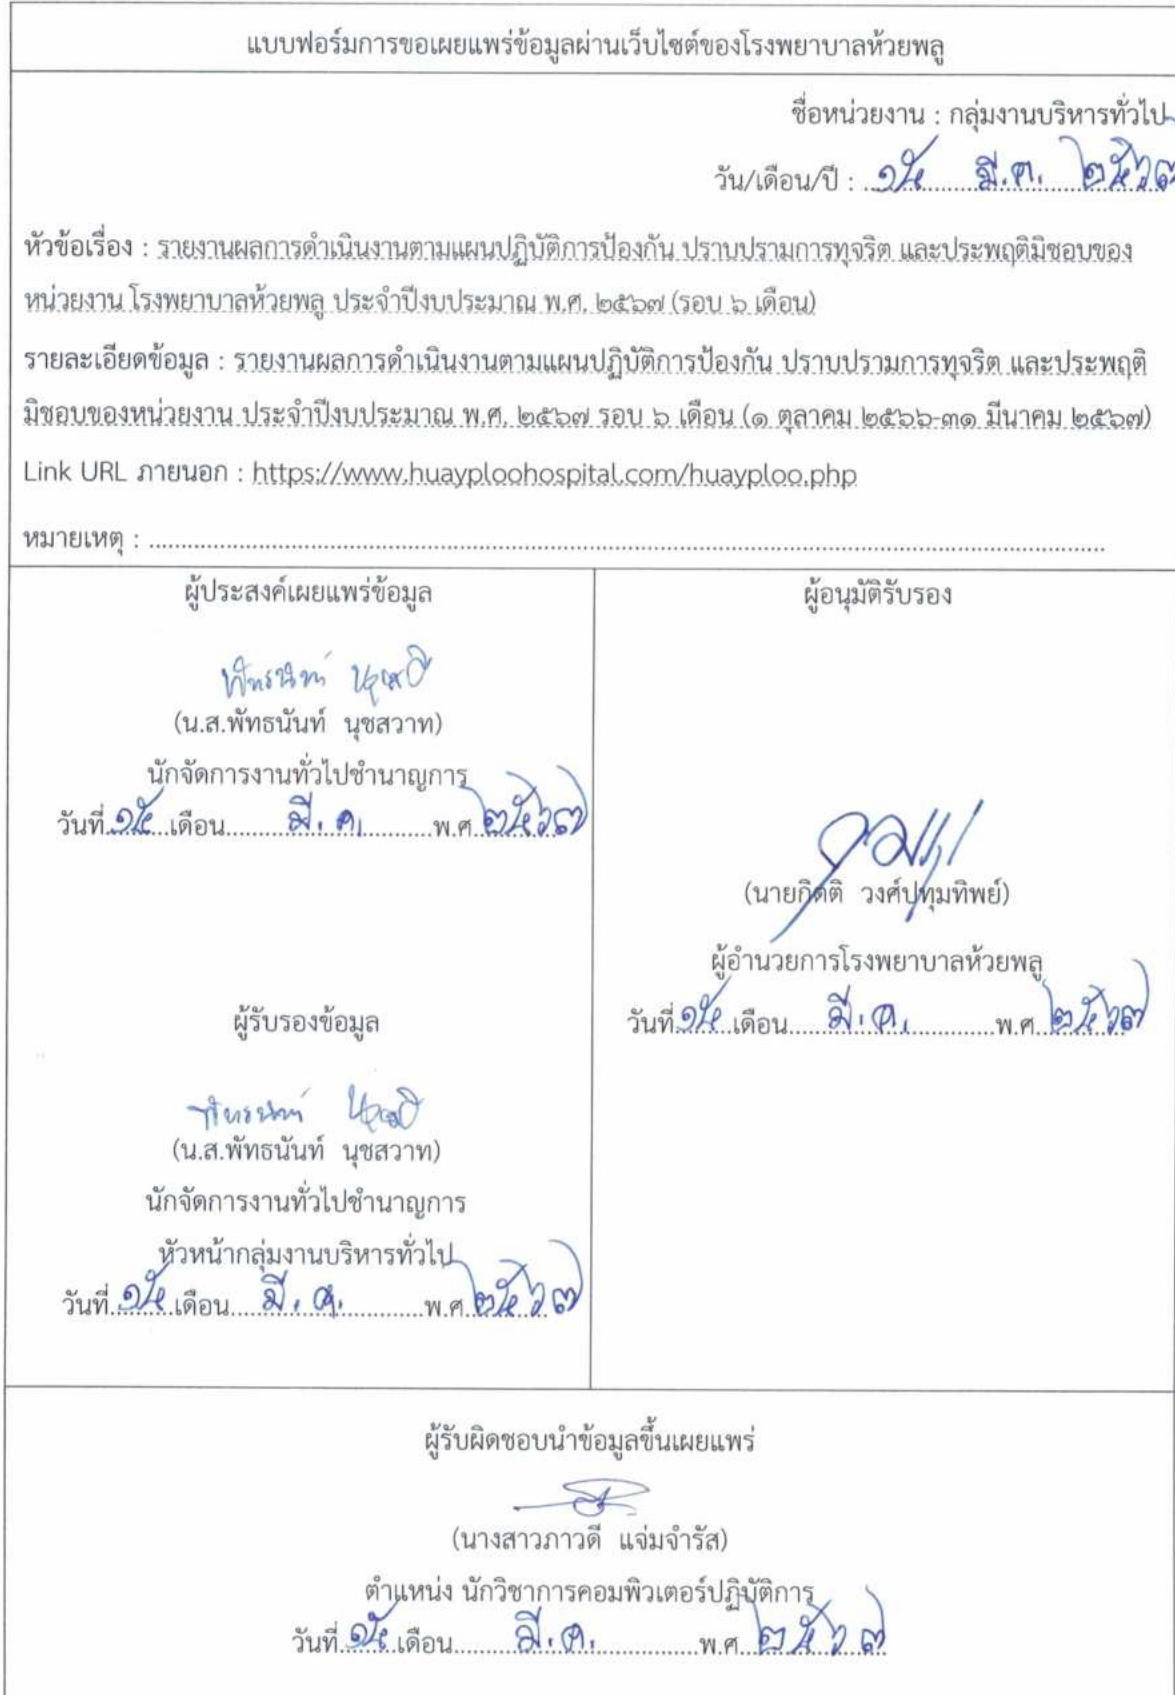 แบบฟอร์มการขอเผยแพร่ข้อมูลผ่านเว็บไซต์ของโรงพยาบาลห้วยพลู
ชื่อหน่วยงาน : กลุ่มงานบริหารทั่วไป
วัน/เดือน/ปี : ๑๕ มี.ค. ๒๕๖๗
หัวข้อเรื่อง : รายงานผลการดำเนินงานตามแผนปฏิบัติการป้องกัน ปราบปรามการทุจริต และประพฤติมิชอบของ
หน่วยงาน โรงพยาบาลห้วยพลู ประจำปีงบประมาณ พ.ศ. ๒๕๖๗ (รอบ ๖ เดือน)
รายละเอียดข้อมูล : รายงานผลการดำเนินงานตามแผนปฏิบัติการป้องกัน ปราบปรามการทุจริต และประพฤติ
มิชอบของหน่วยงาน ประจำปีงบประมาณ พ.ศ. ๒๕๖๗ รอบ ๖ เดือน (๑ ตุลาคม ๒๕๖๖-๓๑ มีนาคม ๒๕๖๗)
Link URL ภายนอก : https://www.huayploohospital.com/huayploo.php
หมายเหตุ :
ผู้ประสงค์เผยแพร่ข้อมูล
พัทธนันท์ นุชสวาท
(น.ส.พัทธนันท์ นุชสวาท)
นักจัดการงานทั่วไปชำนาญการ
วันที่ ๑๕ เดือน มี.ค. พ.ศ ๒๕๖๗
ผู้รับรองข้อมูล
พัทธนันท์ นุชสวาท
(น.ส.พัทธนันท์ นุชสวาท)
นักจัดการงานทั่วไปชำนาญการ
หัวหน้ากลุ่มงานบริหารทั่วไป
วันที่ ๑๕ เดือน มี.ค. พ.ศ ๒๕๖๗
ผู้อนุมัติรับรอง
(นายกิตติ วงศ์ปทุมทิพย์)
ผู้อำนวยการโรงพยาบาลห้วยพลู
วันที่ ๑๕ เดือน มี.ค. พ.ศ ๒๕๖๗
ผู้รับผิดชอบนำข้อมูลขึ้นเผยแพร่
(นางสาวภาวดี แจ่มจำรัส)
ตำแหน่ง นักวิชาการคอมพิวเตอร์ปฏิบัติการ
วันที่ ๑๕ เดือน มี.ค. พ.ศ ๒๕๖๗